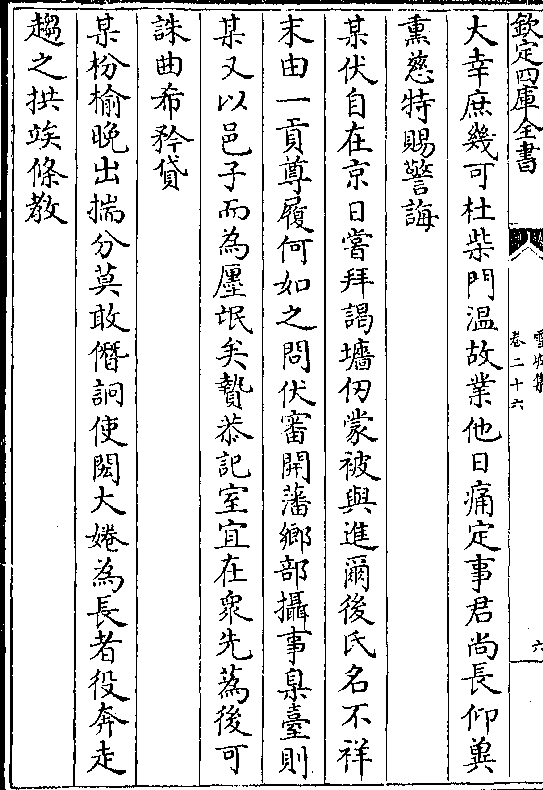 欽定四庫全書
卷二十六
六
大幸庶幾可杜柴門温故業他日痛定事君尚長仰冀
熏慈特賜警誨
某伏自在京日嘗拜謁墻仞蒙被與進爾後氏名不祥
末由一貢尊履何如之問伏審開藩鄉部攝事臬臺則
某又以邑子而為廛氓矣贄恭記室宜在衆先蔿後可
誅曲希矜貸
某枌榆晚出揣分莫敢僭詗使閎大婘為長者役奔走
趨之拱竢條教